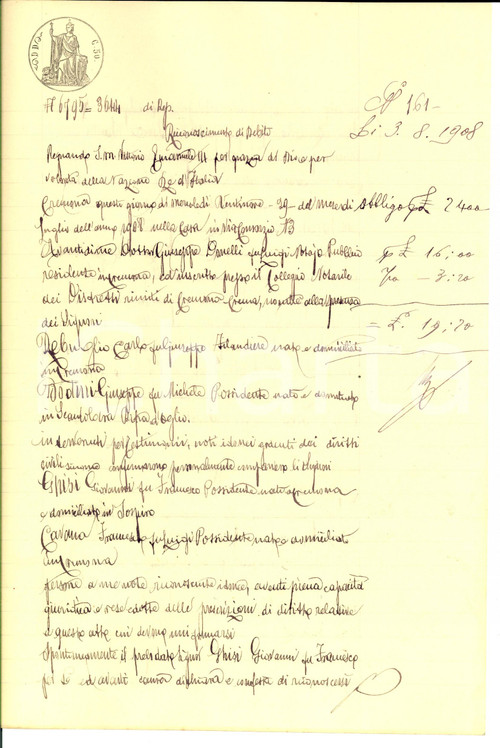 N 6795 = 3644 di Rep.
N° 161-
Li 3. 8. 1908
Riconoscimento di Debito
Regnando S. M. Vittorio Emanuele III per grazia di Dio e per
volontà della Nazione Re d'Italia
Cremona questo giorno di mercoledì Ventinove - 29 - del mese di
Obbligo £ 2400
luglio dell'anno 1908 nella Casa in Via Consorzio N 3
Avanti di me Dottor Giuseppe Donelli fu Luigi Notajo Pubblico
£ 16,00
residente in Cremona, ed inscritto presso il Collegio Notarile
3,20
dei Distretti riuniti di Cremona Crema, in alla presenza
dei Signori
= £ 19,20
Carlo fu Giuseppe nato e domiciliato
in Cremona
Giuseppe fu Michele Possidente nato e domiciliato
in Scandolara Ripa d'Oglio.
intervenuti per testimonii, noti idonei giusti dei diritti
civili siccome confermarono personalmente comparvero li Signori
Ghisi Giovanni fu Francesco Possidente nato a Cremona
e domiciliato in Sospiro
Cavana Francesco fu Luigi Possidente nato e domiciliato
in Cremona
persone a me note, riconosciute idonee, aventi piena capacità
giuridica e rese edotte delle prescrizioni di diritto relative
a questo atto cui devono uniformarsi
Spontaneamente il predetto Signor Ghisi Giovanni fu Francesco
per sé ed aventi causa dichiara e confessa di riconoscersi